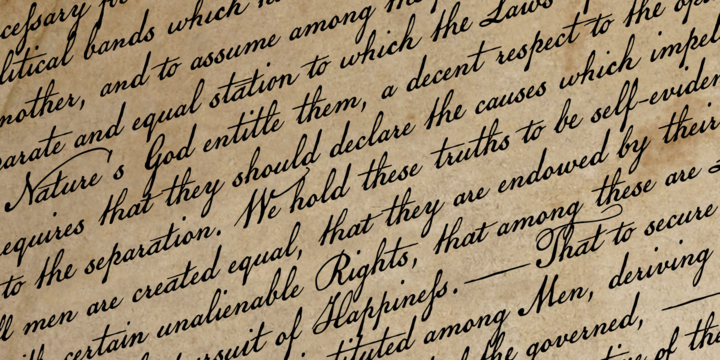 cessary for
litical bands which
nother, and to assume among the
parate and equal station to which the Laws
Nature's God entitle them, a decent respect to the
equires that they should declare the causes which impel
to the separation. We hold these truths to be self-eviden
ll men are created equal, that they are endowed by their
certain unalienable Rights, that among these are
rsuit of Happineſs. — That to secure
tituted among Men, deriving
the governed, —
of the